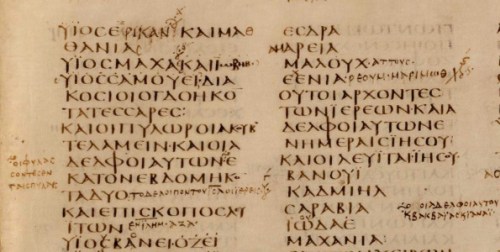 ΥΙΟϹΕΡΙΚΑΝ ΚΑΙΜΑΘ
ΘΑΝΙΑϹ
ΥΙΟϹΜΑΧΑΚΑΙ
ΥΙΟϹϹΑΜΟΥΕΙΔΙΑ
ΚΟϹΙΟΙΟΓΔΟΗΚΟ
ΤΑΤΕϹϹΑΡΕϹ:
ΚΑΙΟΙΠΥΛΩΡΟΙΑΚΟΥΒ
ΤΕΛΑΜΕΙΝΚΑΙΟΙΑ
ΔΕΛΦΟΙΑΥΤΩΝΕ
ΚΑΤΟΝΕΒΔΟΜΗΚ
ΤΑΔΥΟ
ΚΑΙΕΠΙϹΚΟΠΟϹΛΕΥ
ΙΤΩΝ
ΥΙΟϹΒΑΝΕΙΟΖΕΙ
ΕϹΑΡΑ
ΜΑΡΕΙΑ
ΜΑΛΟΥΧ ΑΤΤΟΥϹ
ΕΕΝΙΑ ΡΕΟΥΜ ΜΑΡΙΜΩΘ
ΟΥΤΟΙΑΡΧΟΝΤΕϹ
ΤΩΝΙΕΡΕΩΝΚΑΙΑ
ΔΕΛΦΟΙΑΥΤΩΝΕ
ΝΗΜΕΡΑΙϹΙΗϹΟΥ
ΚΑΙΟΙΛΕΥΙΤΑΙΙΗϹΟΥ
ΒΑΝΟΥΙ
ΚΑΔΜΙΗΛ
ϹΑΡΑΒΙΑ
ΙΩΔΑΕ
ΜΑΧΑΝΙΑ